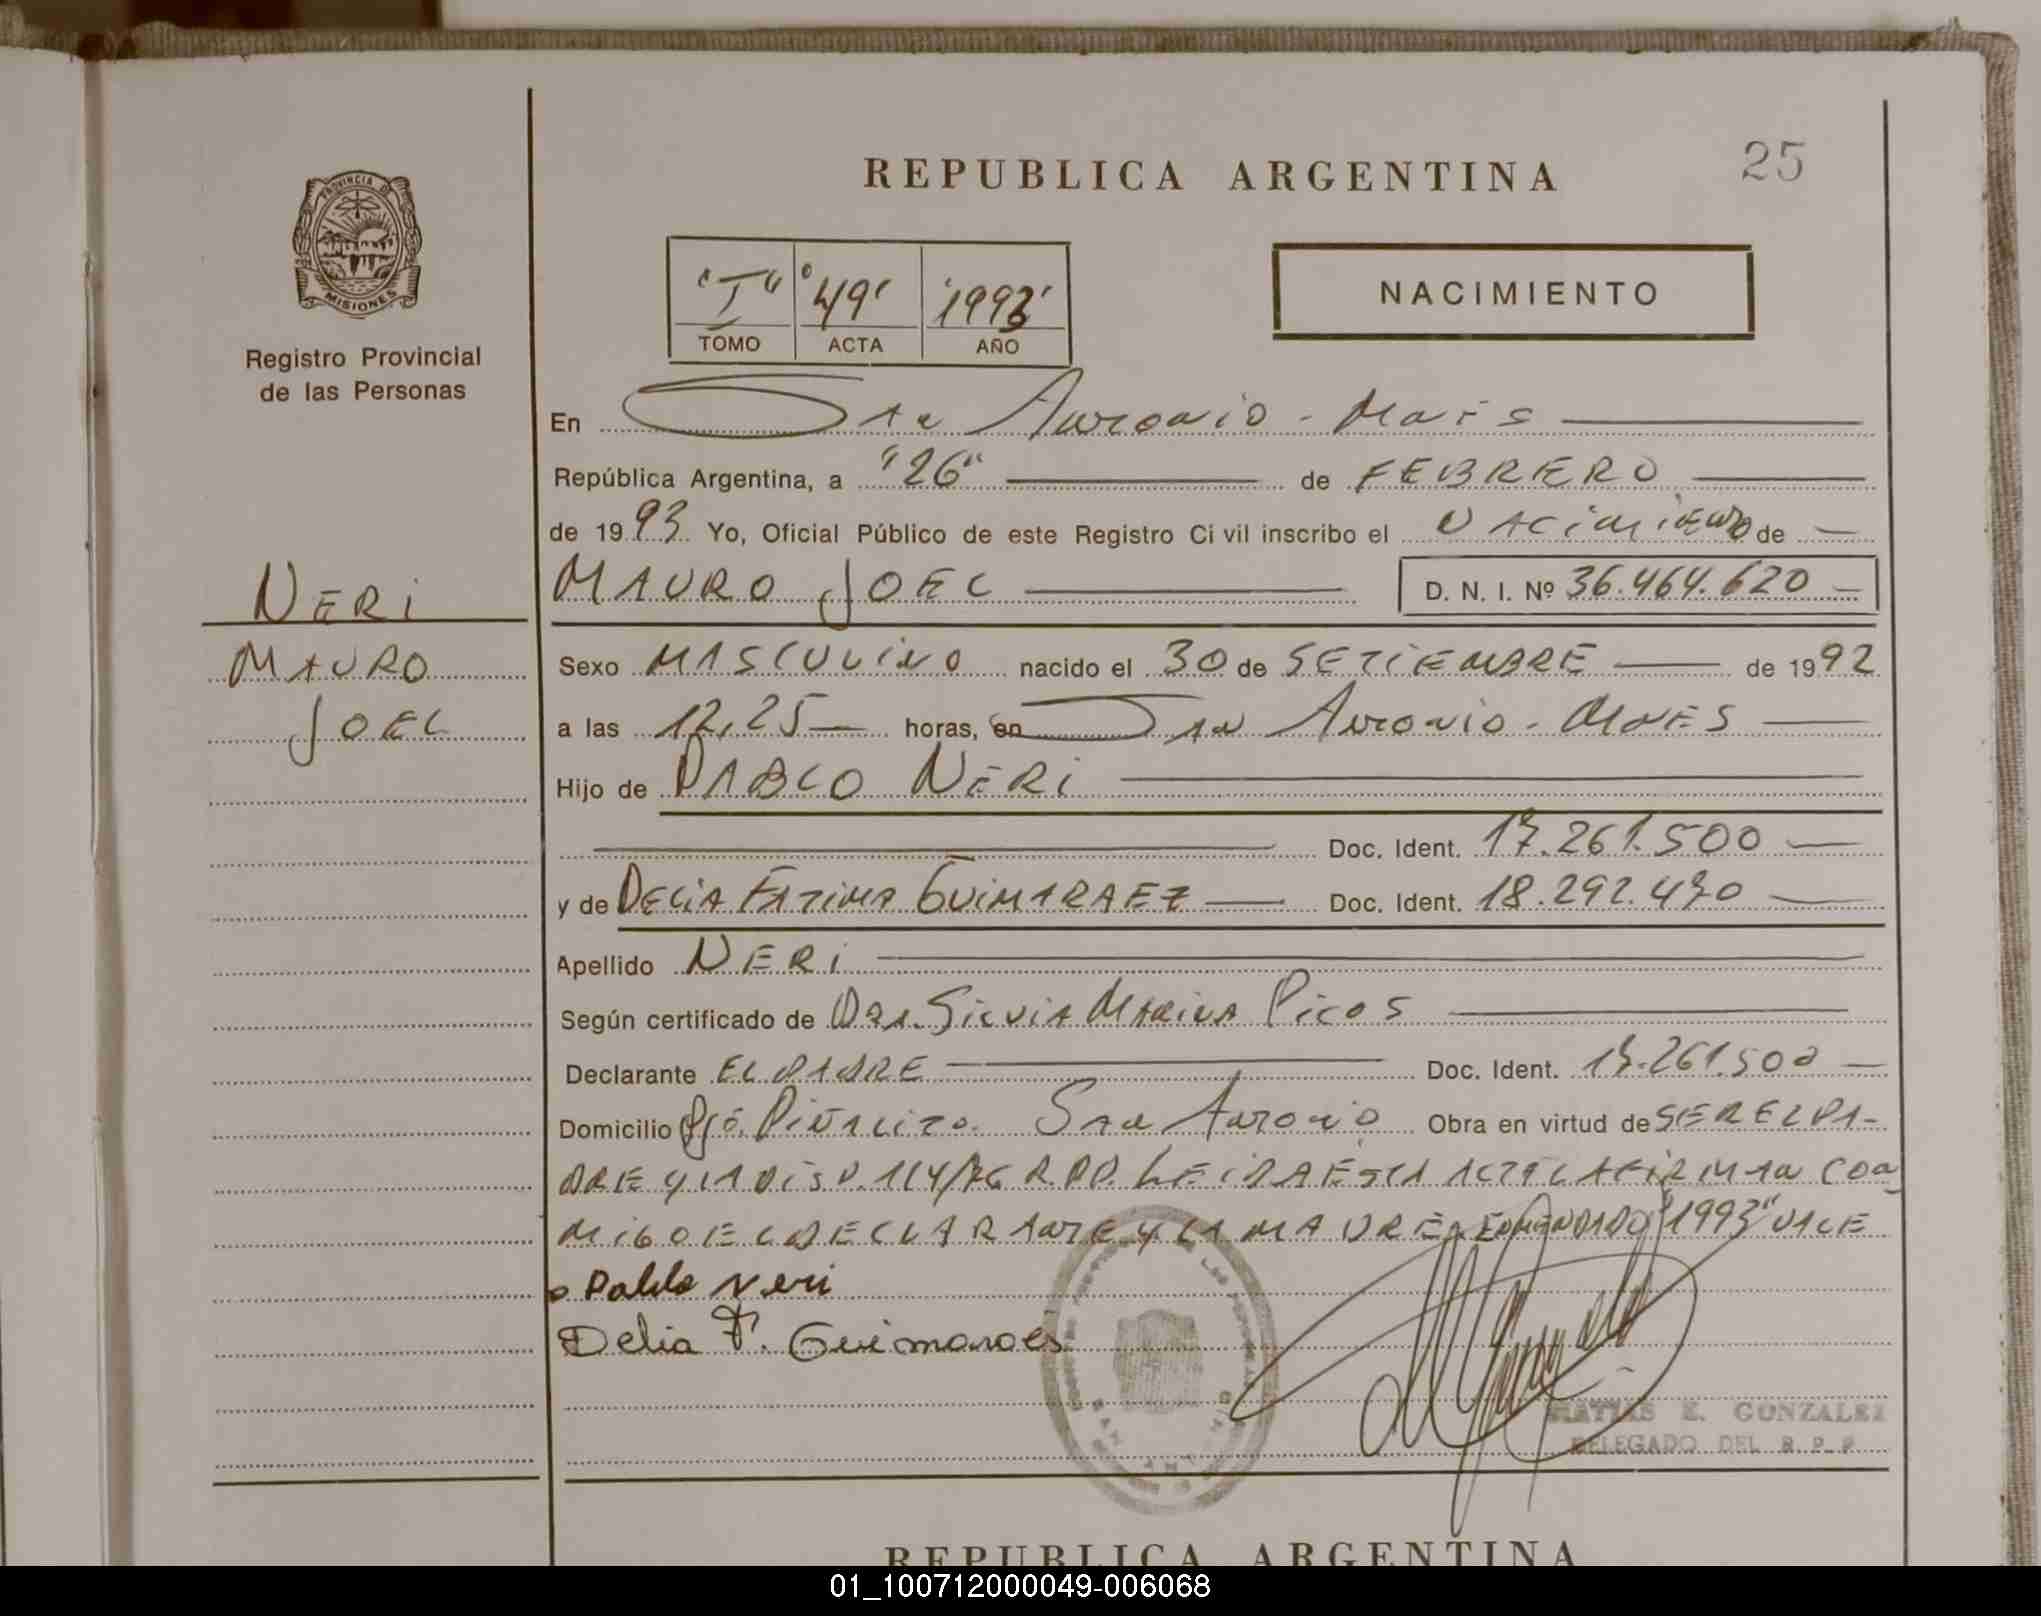 REPUBLICA ARGENTINA
25
PROVINCIA DE
MISIONES
Registro Provincial
de las Personas
"I" "49" "1993"
TOMO ACTA AÑO
NACIMIENTO
En San Antonio - Mnes
República Argentina, a "26" de FEBRERO
de 1993 Yo, Oficial Público de este Registro Civil inscribo el NACIMIENTO de
MAURO JOEL D. N. I. Nº 36.464.620
NERI
MAURO
JOEL
Sexo MASCULINO nacido el 30 de SETIEMBRE de 1992
a las 12,25 horas, en San Antonio - Mnes
Hijo de PABLO NERI
Doc. Ident. 17.261.500
y de DELIA FATIMA GUIMARAEZ Doc. Ident. 18.292.470
Apellido NERI
Según certificado de DRA. SILVIA MARINA PICOS
Declarante EL PADRE Doc. Ident. 17.261.500
Domicilio Piñalito San Antonio Obra en virtud de SER EL PA-
DRE Y LA DISP. 114/76 R.P.P. LEIDA ESTA ACTA LA FIRMAN CON
MIGO EL DECLARANTE Y LA MADRE. ENMENDADO "1993" VALE
Pablo Neri
Delia F. Guimaraes
MATIAS E. GONZALEZ
DELEGADO DEL R.P.P.
REPUBLICA ARGENTINA
01_100712000049-006068